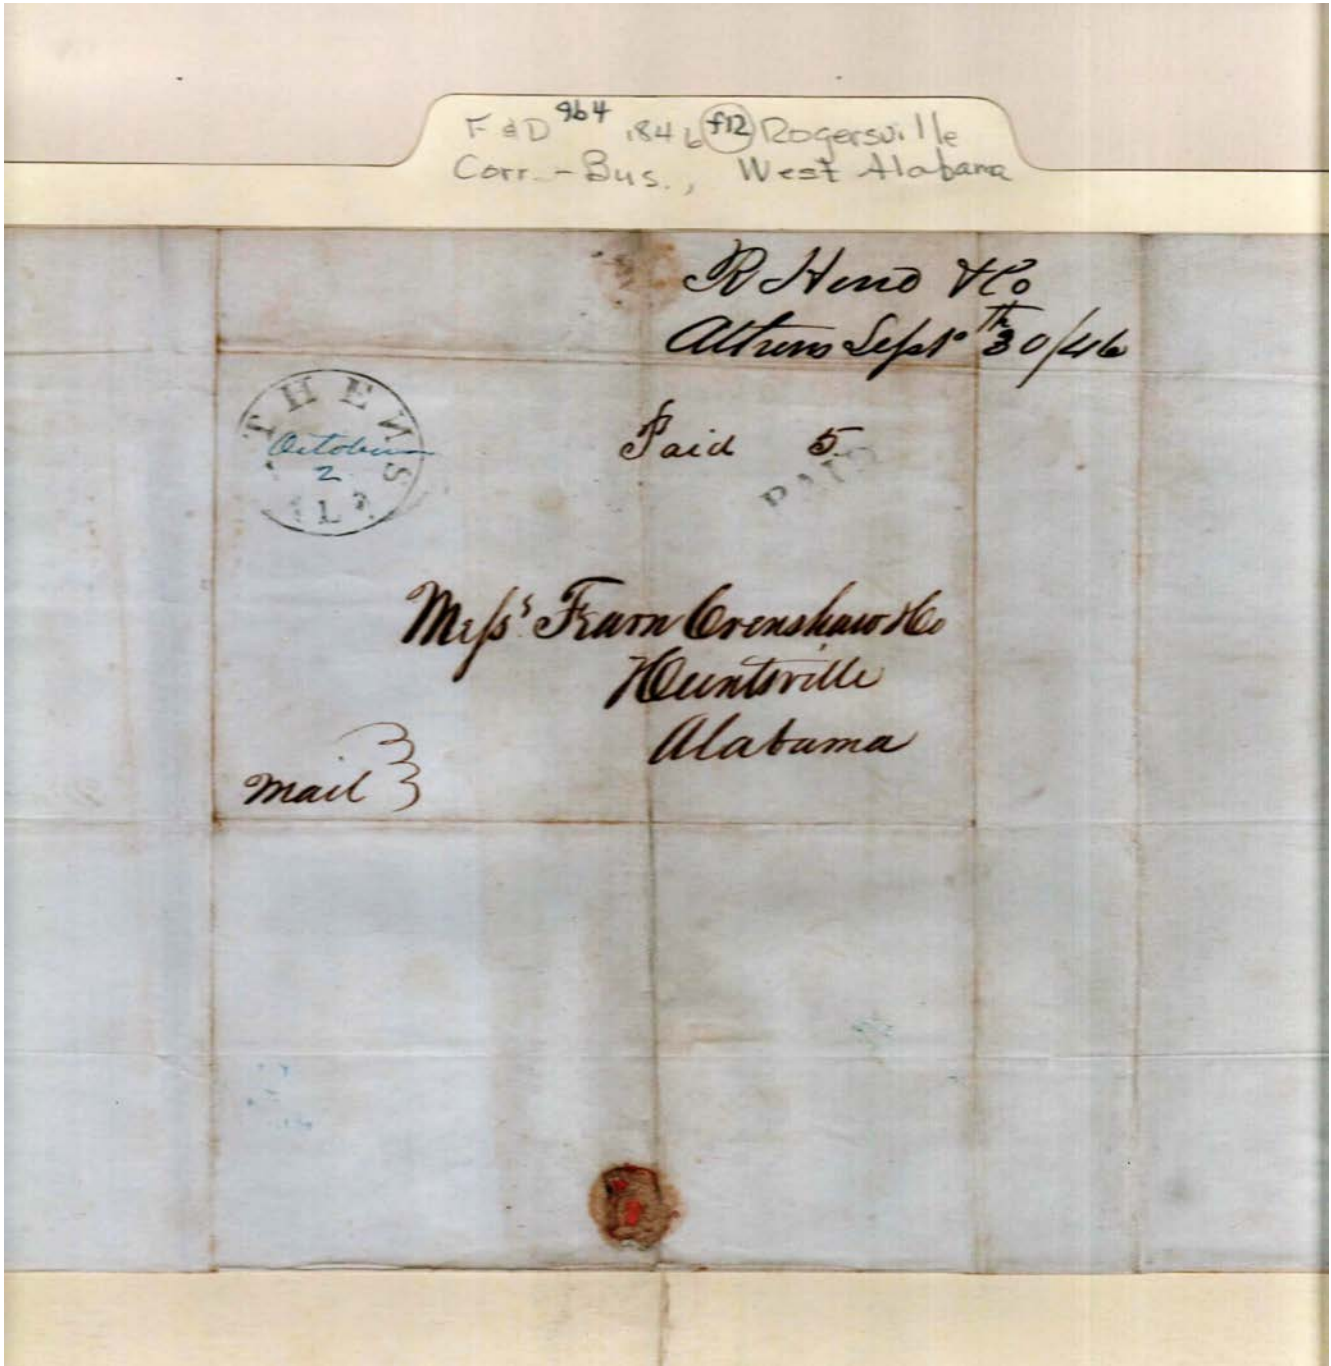 F & D 9b4 1846 f12 Rogersville
Corr.-Bus., West Alabama
R Hine & Co
Athens Sept 30th/46
THENS
October
2
AL
Paid 5
PAID
Messrs Fearn Crenshaw & Co
Huntsville
Alabama
Mail